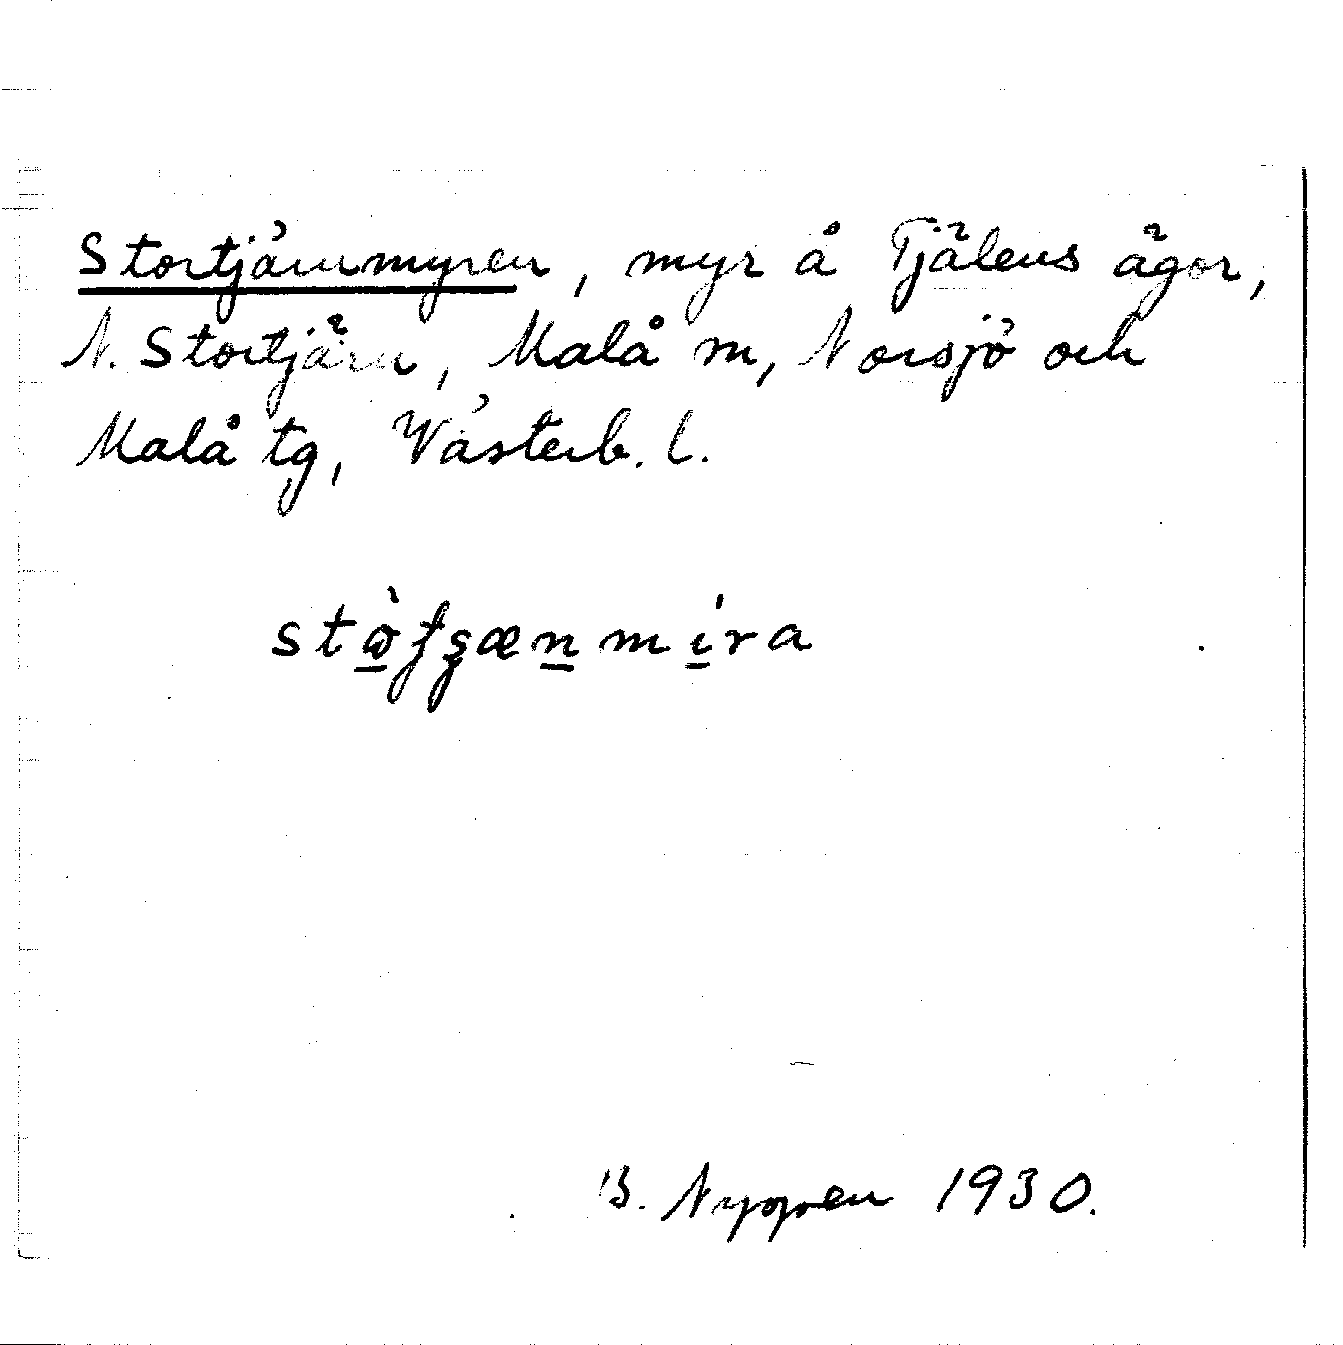 Stortjärnmyren, myr å Tjälens ägor,
N. Stortjärn, Malå sn, Norsjö och
Malå tg, Västerb. l.
B. Nyppen 1930.